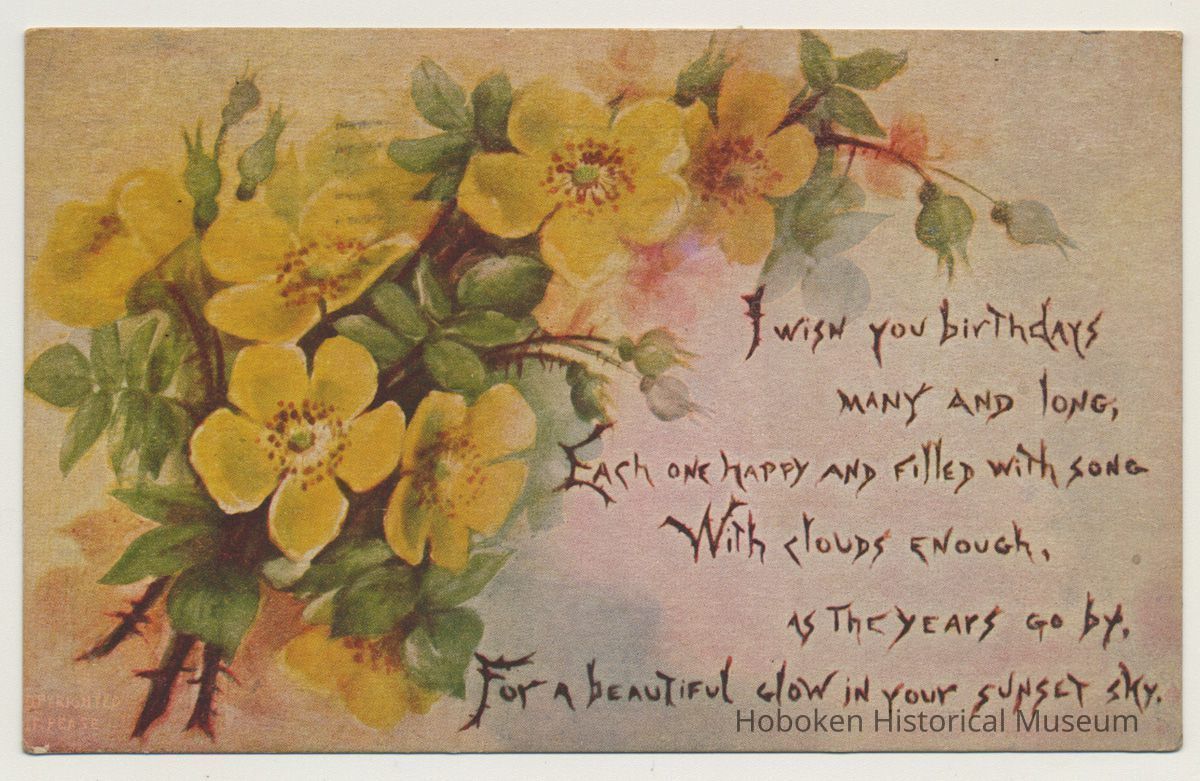 I wish you birthdays
many and long,
Each one happy and filled with song
With clouds enough,
as the years go by,
For a beautiful glow in your sunset sky.
Hoboken Historical Museum